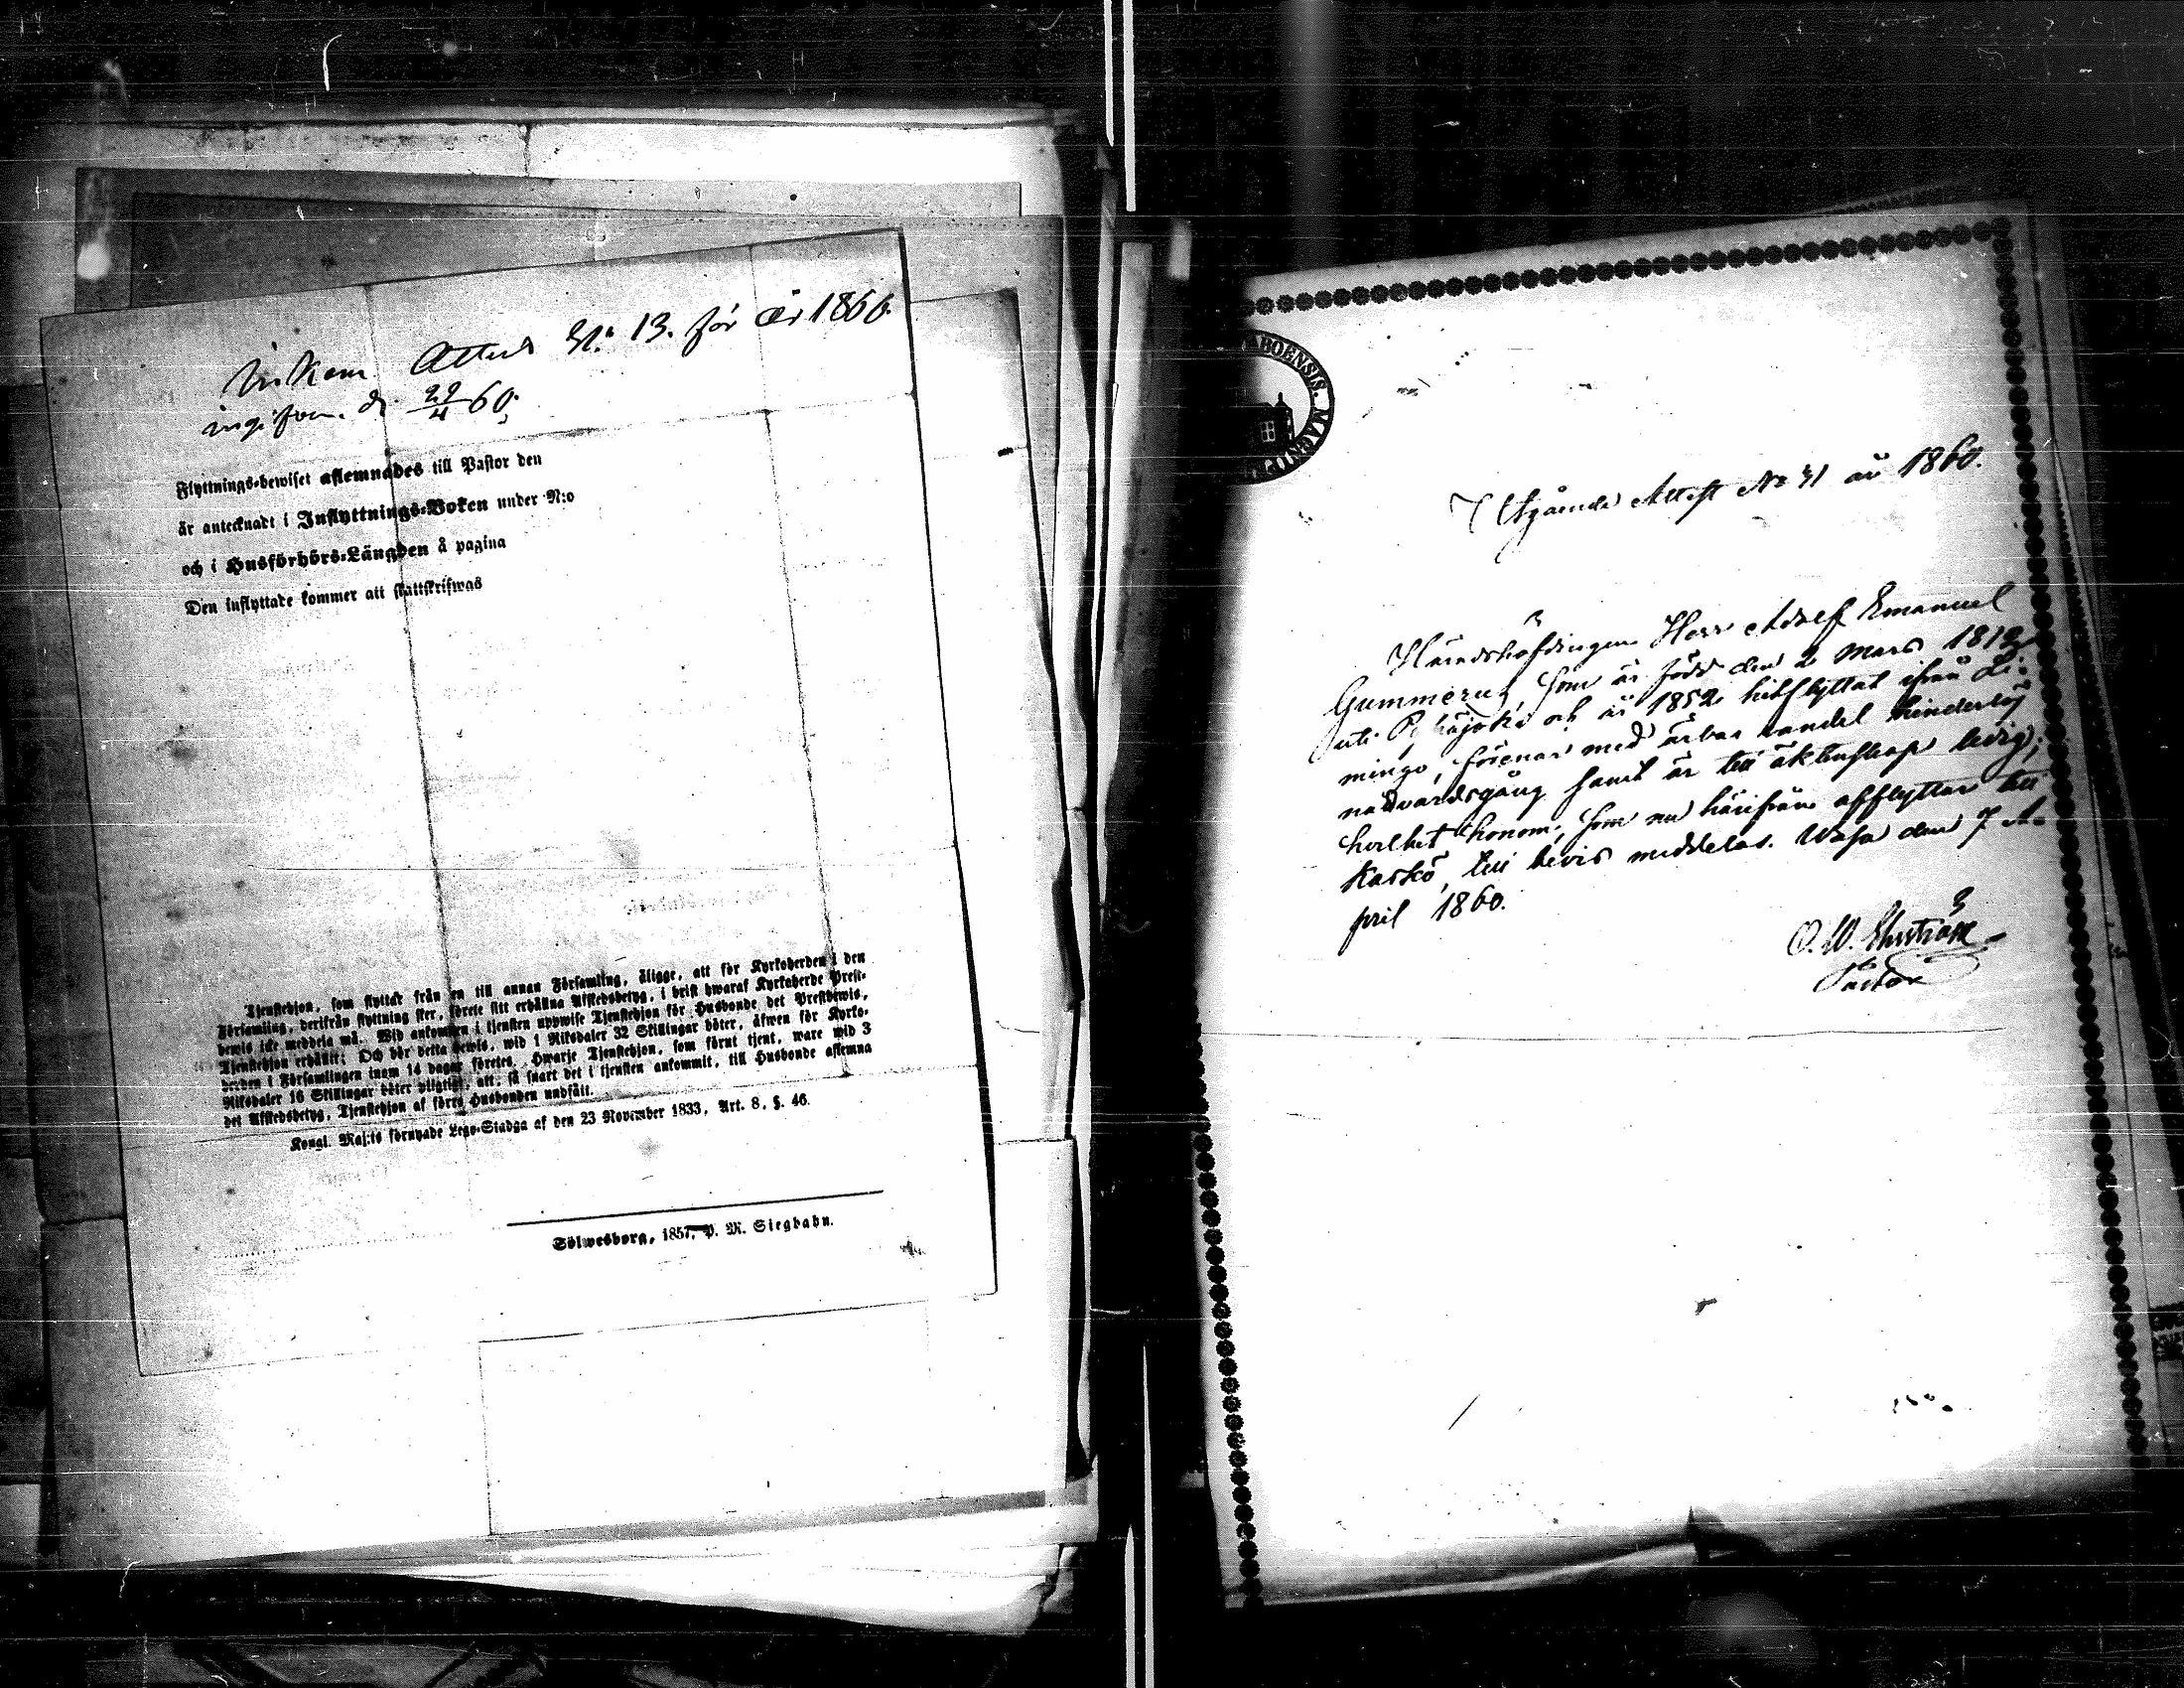 Inkom Attest No 13. för år 1860.
ingifven d. 22/4 60.
Flyttnings-bewiset aflemnades till Pastor den
är antecknadt i Inflyttnings-Boken under N:o
och i Husförhörs-Längden å pagina
Den inflyttade kommer att skattskrifwas
Tjenstehjon, som flyttar från en till annan Församling, åligge, att för Kyrkoherden i den
Församling, derifrån flyttning sker, förete sitt erhållna Afskedsbetyg, i brist hwaraf Kyrkoherde Prest-
bewis icke meddela må. Wid ankomsten i tjensten uppwise Tjenstehjon för Husbonde det Prestbewis,
Tjenstehjon erhållit; Och bör detta bewis, wid 1 Riksdaler 32 Skillingar böter, äfwen för Kyrko-
herden i Församlingen inom 14 dagar företes. Hwarje Tjenstehjon, som förut tjent, ware wid 3
Riksdaler 16 Skillingar böter pligtigt, att, så snart det i tjensten ankommit, till Husbonde aflemna
det Afskedsbetyg, Tjenstehjon af förra Husbonden undfått.
Kongl. Maj:ts förnyade Lego-Stadga af den 23 November 1833, Art. 8, §. 46.
Sölwesborg, 1857, P. M. Siegbahn.
ABOENSIS. MAGNI
Utgående Attest No 41 år 1860.
Häradshöfdingen Herr Adolf Emanuel
Gummerus, som är född den 2 Mars 1812
uti Pyhäjoki och år 1852 hitflyttat ifrån Li-
mingo, förenar med ärbar vandel hinderlös
nattvardsgång samt är till äktenskap ledig;
hvilket honom, som nu härifrån afflyttar till
Kaskö, till bevis meddelas. Wasa den 7 A-
pril 1860.
O. W. Ehrström
Pastor